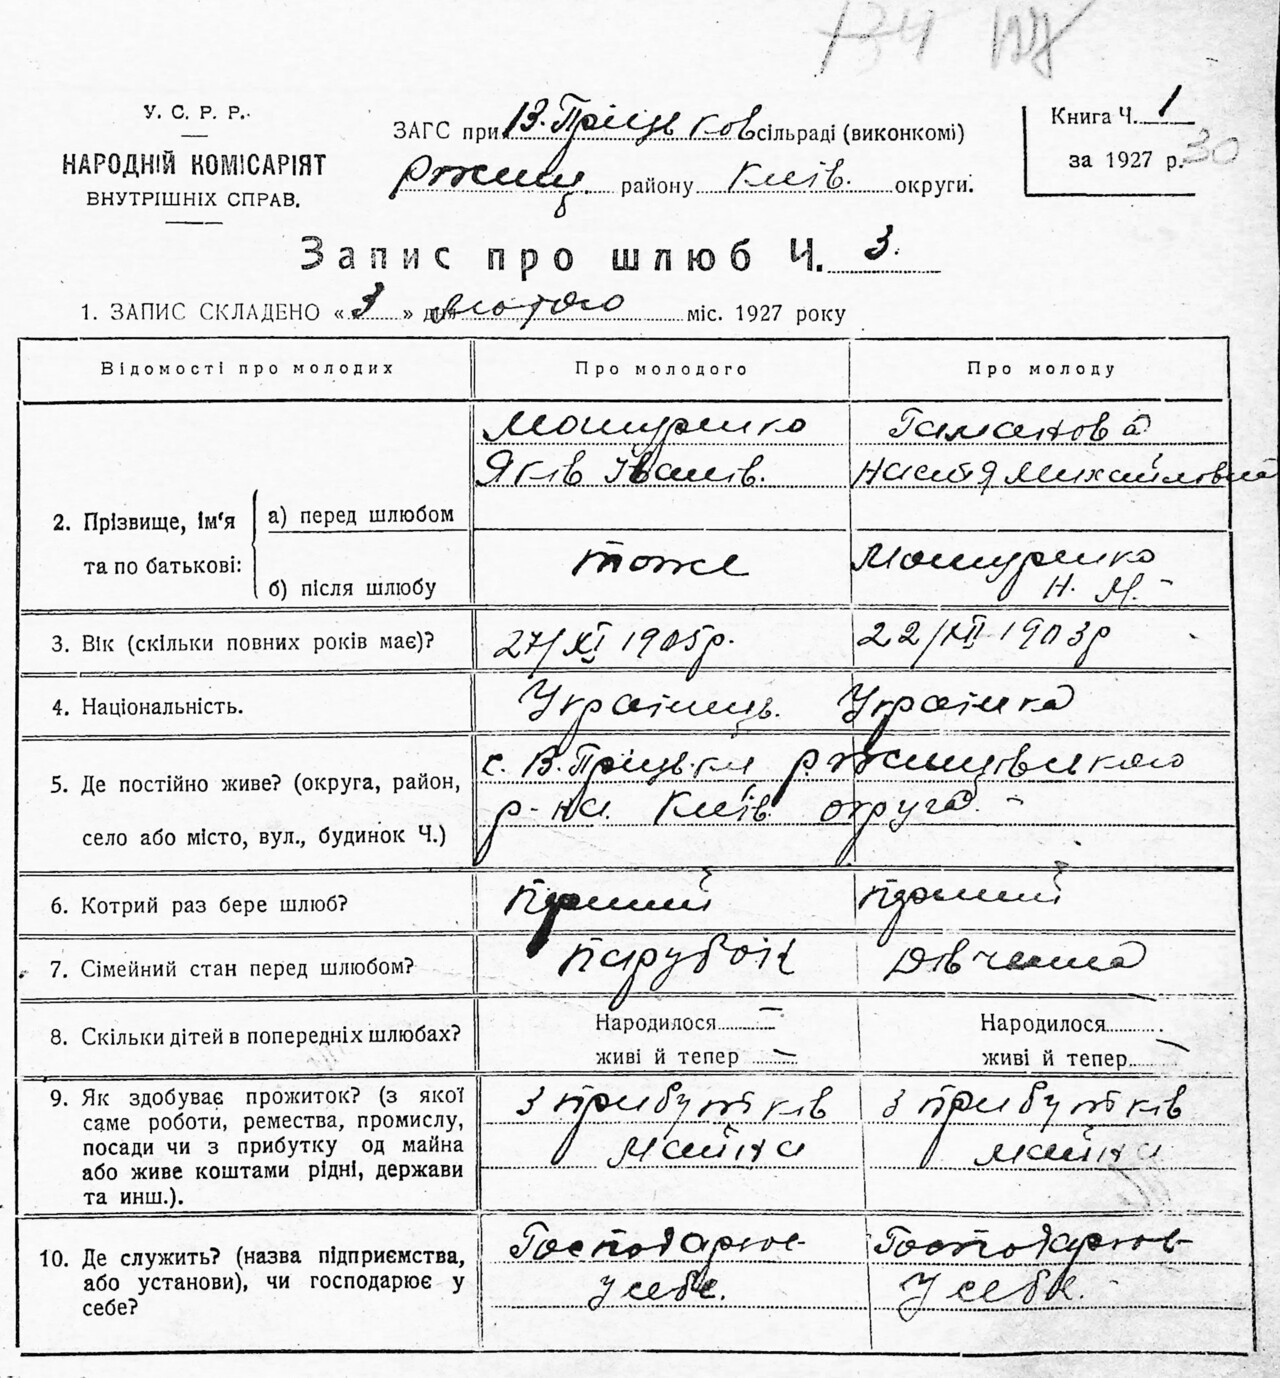 134 127
У. С. Р. Р.
НАРОДНІЙ КОМІСАРІЯТ
ВНУТРІШНІХ СПРАВ.
ЗАГС при В. Прицьков сільраді (виконкомі)
Ржищ. району Київ. округи.
Книга Ч. 1
за 1927 р. 30
Запис про шлюб Ч. 3.
1. ЗАПИС СКЛАДЕНО « 3 » дня лютого міс. 1927 року
Відомості про молодих Про молодого Про молоду
Мошуренко Гаманова
Яків Іванів. Настя Михайловна
2. Прізвище, ім'я та по батькові: а) перед шлюбом
б) після шлюбу тоже Мошуренко
Н. М.
3. Вік (скільки повних років має)? 27/XI 1905р. 22/XII 1903р
4. Національність. Українець. Українка
5. Де постійно живе? (округа, район, село або місто, вул., будинок Ч.) с. В. Прицьки Ржищівського
р-на. Київ. округа.
6. Котрий раз бере шлюб? Перший Перший
7. Сімейний стан перед шлюбом? Парубок Дівчина
8. Скільки дітей в попередніх шлюбах? Народилося — Народилося
живі й тепер — живі й тепер —
9. Як здобуває прожиток? (з якої
саме роботи, ремества, промислу,
посади чи з прибутку од майна
або живе коштами рідні, держави
та инш.).
З прибутків З прибутків
майна майна
10. Де служить? (назва підприємства,
або установи), чи господарює у
себе?
Господарює Господарює
у себе. У себе.